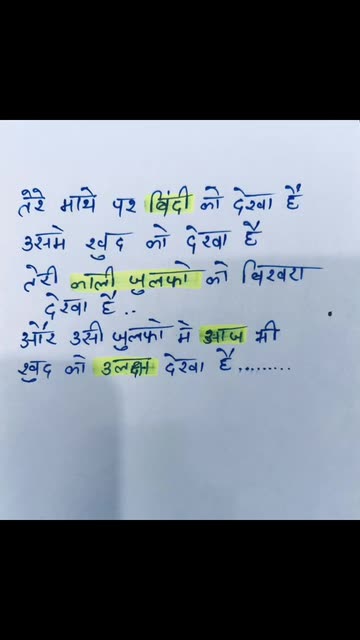 तेरे माथे पर बिंदी को देखा है
उसमे खुद को देखा है
तेरी काली जुलफो को बिखरा
देखा है..
और उसी जुलफो मे आज भी
खुद को उलक्ष देखा है.........